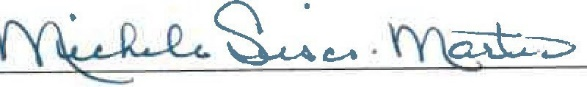 Michele Sisco-Martin